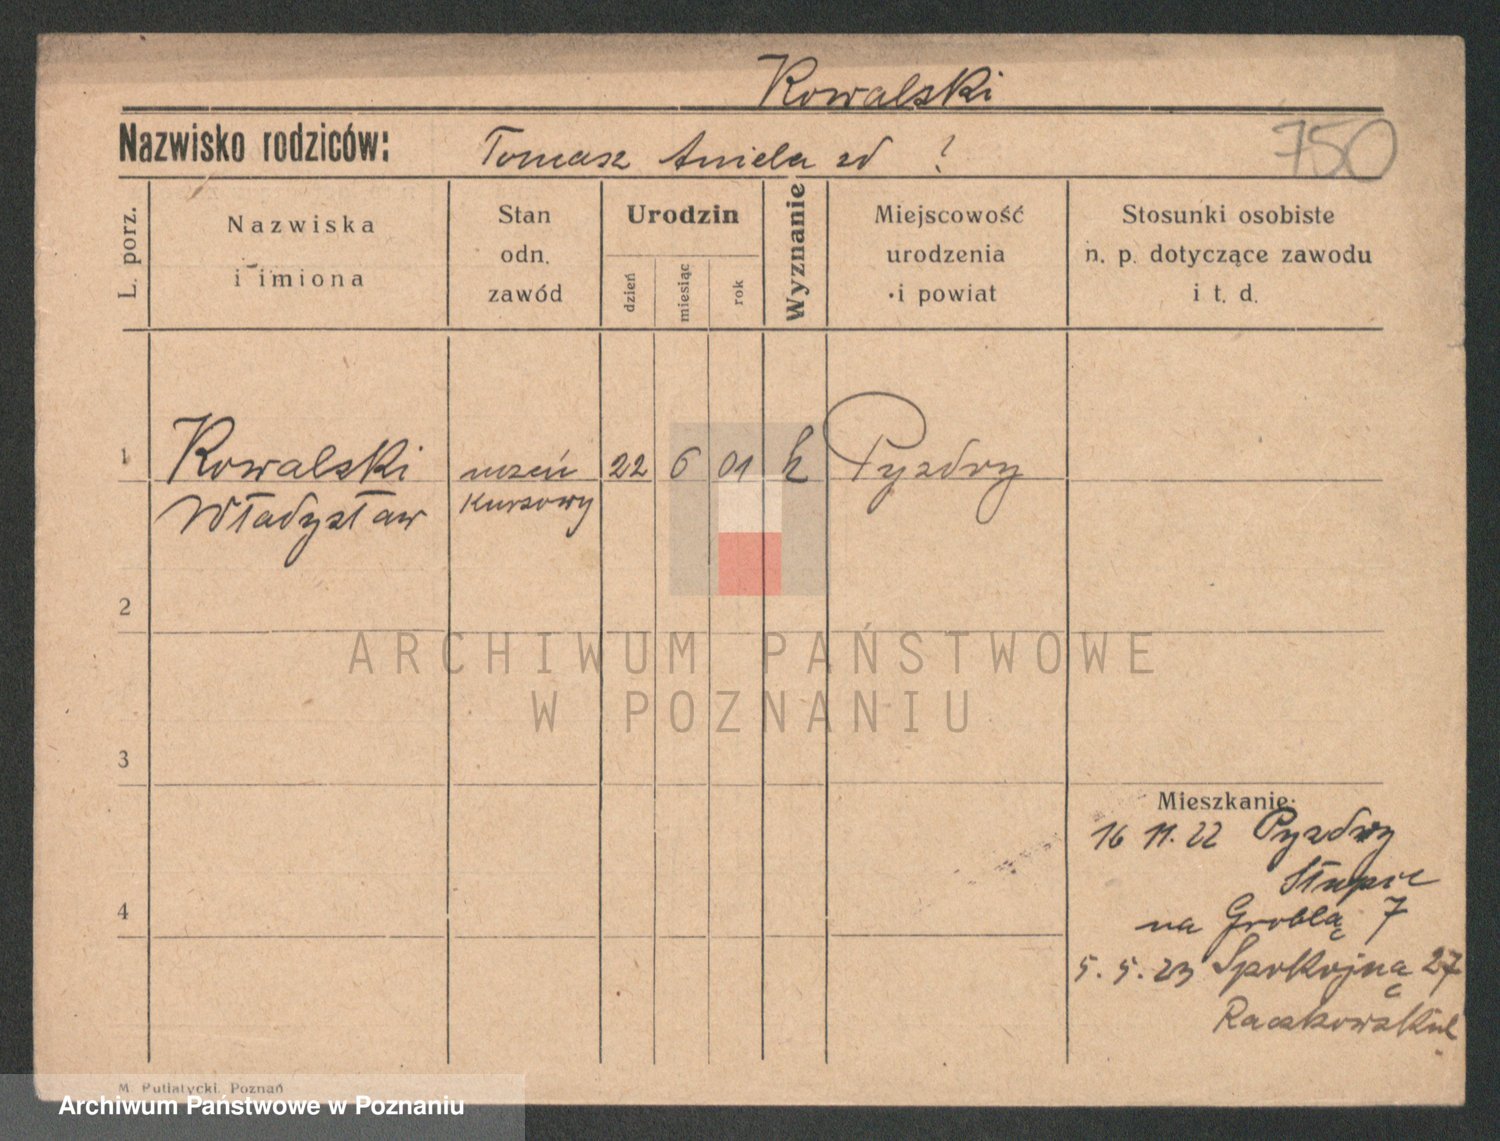 Kowalski
Nazwisko rodziców: Tomasz Aniela zd ?
750
L. porz.
Nazwiska
i imiona
Stan
odn.
zawód
Urodzin
dzień
miesiąc
rok
Wyznanie
Miejscowość
urodzenia
i powiat
Stosunki osobiste
n. p. dotyczące zawodu
i t. d.
1 Kowalski uczeń 22 6 01 k Pyzdry
Władysław kursowy
2
ARCHIWUM PAŃSTWOWE
W POZNANIU
3
Mieszkanie:
16 11. 22 Pyzdry
4
na Groblą 7
5. 5. 23 Spokojna 27
M. Putiatycki, Poznań
Archiwum Państwowe w Poznaniu